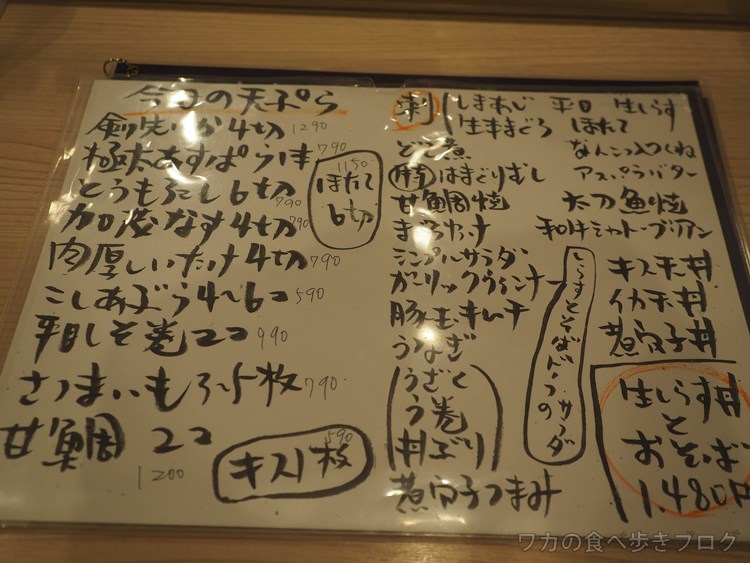 今日の天ぷら
剣先いか4切 1290
極太あすぱら1本 790
とうもろこし6切 790
加茂なす4切 790
肉厚しいたけ4切 790
こしあぶら4〜6コ 590
平目しそ巻2コ 990
さつまいも3〜5枚 790
甘鯛 2コ
1200
1150
ほたて
6切
590
キス1枚
刺 しまあじ 平目 生しらす
生本まぐろ ほたて
なんこつ入つくね
はまぐりむし アスパラバター
甘鯛焼 太刀魚焼
まぐろカツ 和牛シャトーブリアン
シンプルサラダ
ガーリックウィンナー
豚キムチ
うなぎ
うざく
う巻
丼ぶり
煮穴子つまみ
しらすとそばどうふのサラダ
キス天丼
イカ天丼
煮穴子丼
生しらす丼
と
おそば
1,480円
ワカの食べ歩きブログ